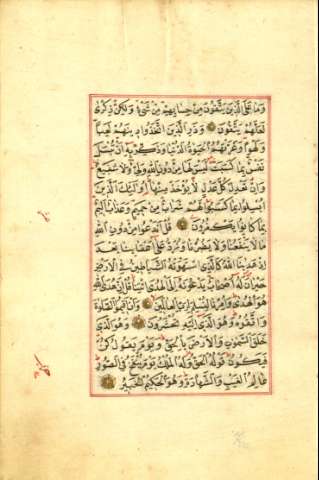 وَمَا عَلَى الَّذِينَ يَتَّقُونَ مِنْ حِسَابِهِمْ مِنْ شَيْءٍ وَلَكِنْ ذِكْرَى
لَعَلَّهُمْ يَتَّقُونَ وَذَرِ الَّذِينَ اتَّخَذُوا دِينَهُمْ لَعِبًا
وَلَهْوًا وَغَرَّتْهُمُ الْحَيَوةُ الدُّنْيَا وَذَكِّرْ بِهِ أَنْ تُبْسَلَ
نَفْسٌ بِمَا كَسَبَتْ لَيْسَ لَهَا مِنْ دُونِ اللَّهِ وَلِيٌّ وَلَا شَفِيعٌ
وَإِنْ تَعْدِلْ كُلَّ عَدْلٍ لَا يُؤْخَذْ مِنْهَا أُولَئِكَ الَّذِينَ
أُبْسِلُوا بِمَا كَسَبُوا لَهُمْ شَرَابٌ مِنْ حَمِيمٍ وَعَذَابٌ أَلِيمٌ
بِمَا كَانُوا يَكْفُرُونَ قُلْ أَنَدْعُو مِنْ دُونِ اللَّهِ
مَا لَا يَنْفَعُنَا وَلَا يَضُرُّنَا وَنُرَدُّ عَلَى أَعْقَابِنَا بَعْدَ
إِذْ هَدَينَا اللَّهُ كَالَّذِي اسْتَهْوَتْهُ الشَّيَاطِينُ فِي الْأَرْضِ
حَيْرَانَ لَهُ أَصْحَابٌ يَدْعُونَهُ إِلَى الْهُدَى ائْتِنَا قُلْ إِنَّ هُدَى اللَّهِ
هُوَ الْهُدَى وَأُمِرْنَا لِنُسْلِمَ لِرَبِّ الْعَالَمِينَ وَأَنْ أَقِيمُوا الصَّلَوةَ
وَاتَّقُوهُ وَهُوَ الَّذِي إِلَيْهِ تُحْشَرُونَ وَهُوَ الَّذِي
خَلَقَ السَّمَوَاتِ وَالْأَرْضَ بِالْحَقِّ وَيَوْمَ يَقُولُ كُنْ
فَيَكُونُ قَوْلُهُ الْحَقُّ وَلَهُ الْمُلْكُ يَوْمَ يُنْفَخُ فِي الصُّورِ
عَالِمُ الْغَيْبِ وَالشَّهَادَةِ وَهُوَ الْحَكِيمُ الْخَبِيرُ